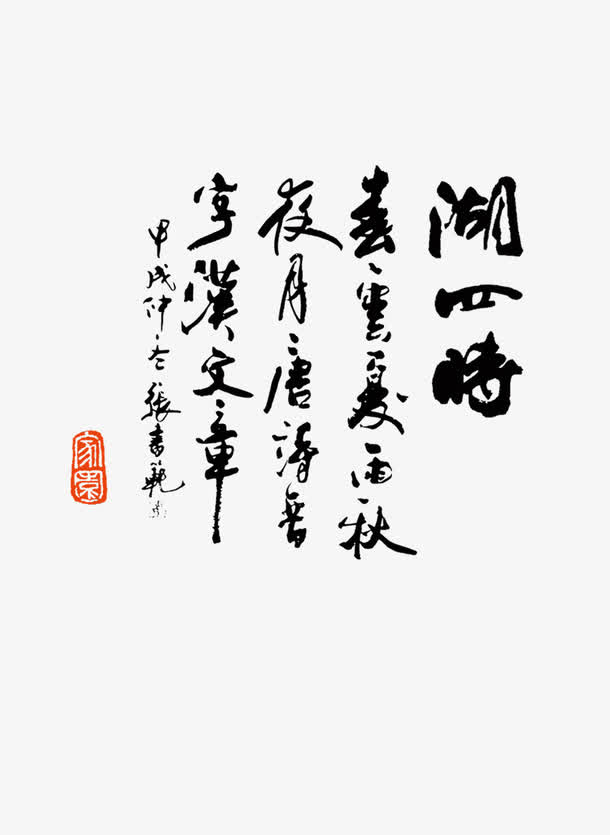 湖四時
春雲夏雨秋
夜月唐詩晉
字漢文章
甲戌仲冬張書範
家園